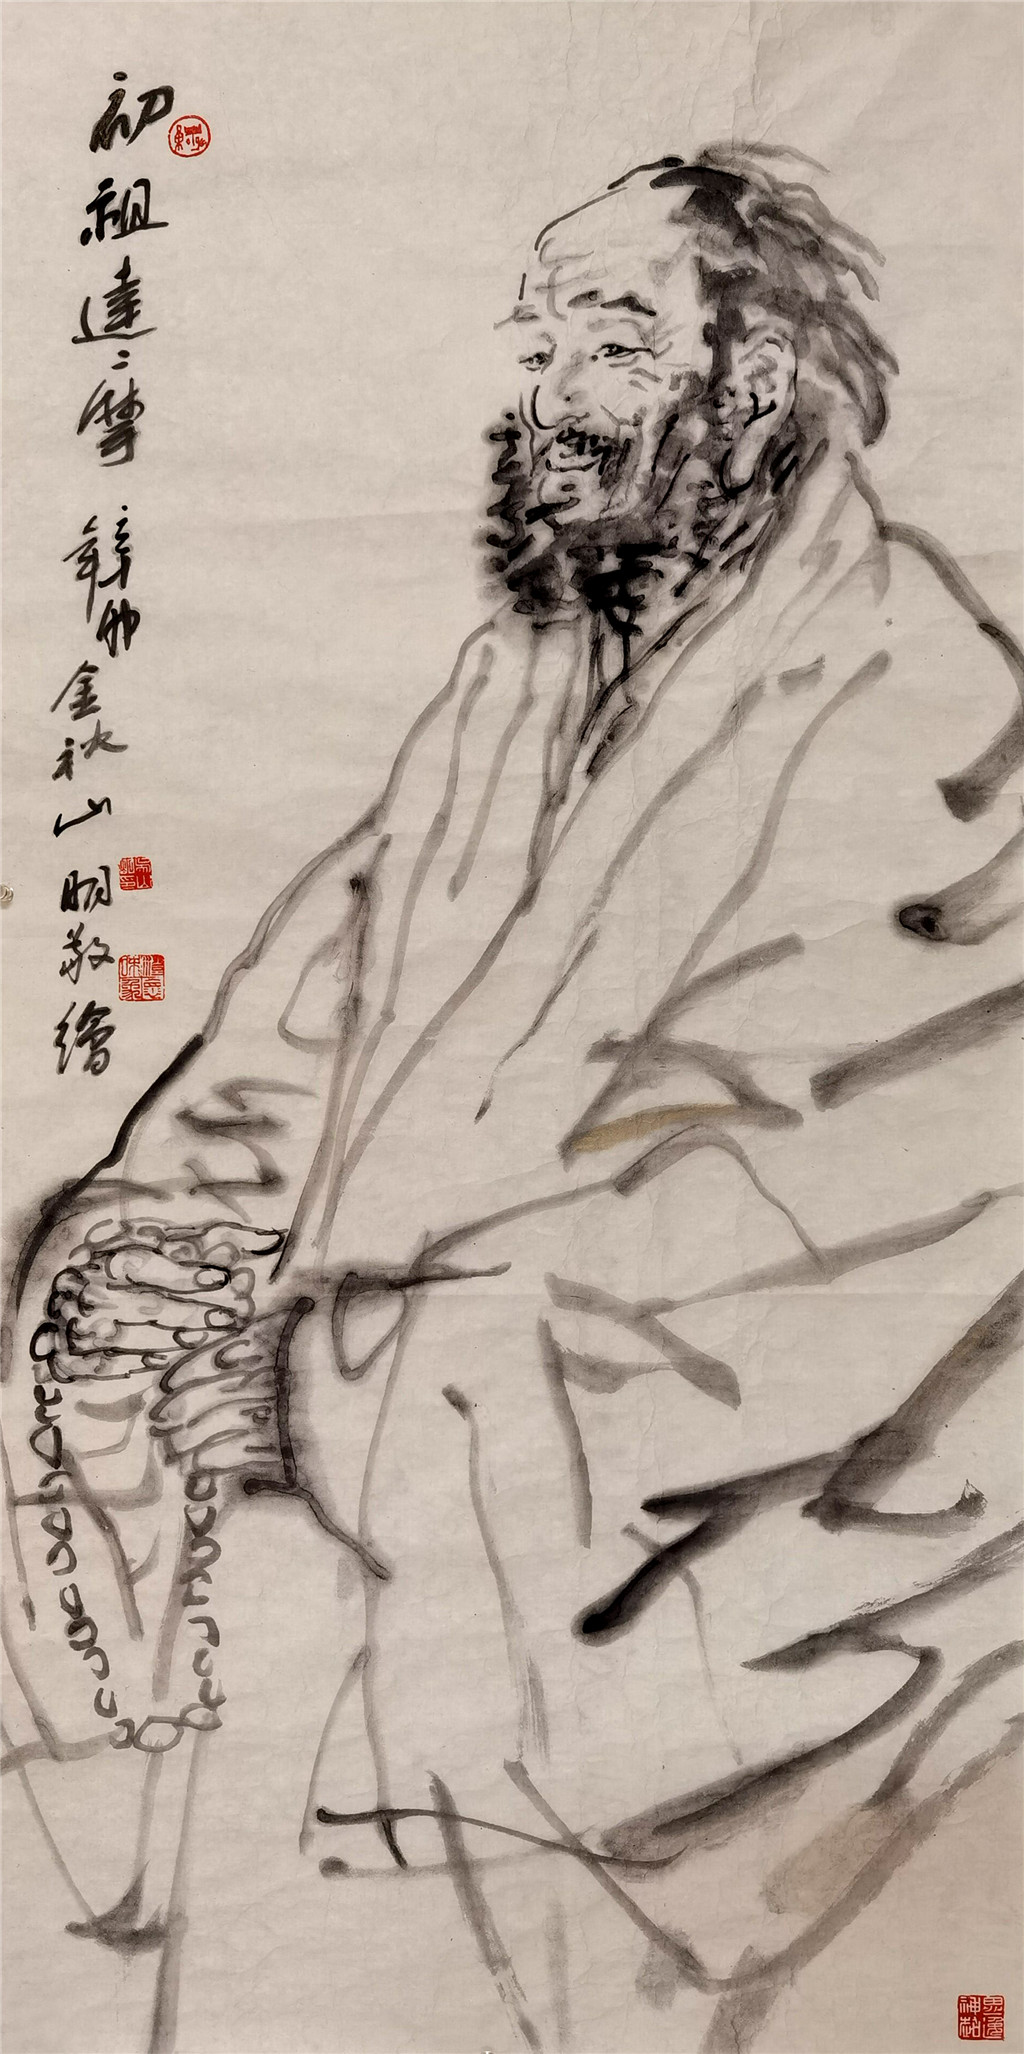 初祖達摩辛卯金秋山明敬繪